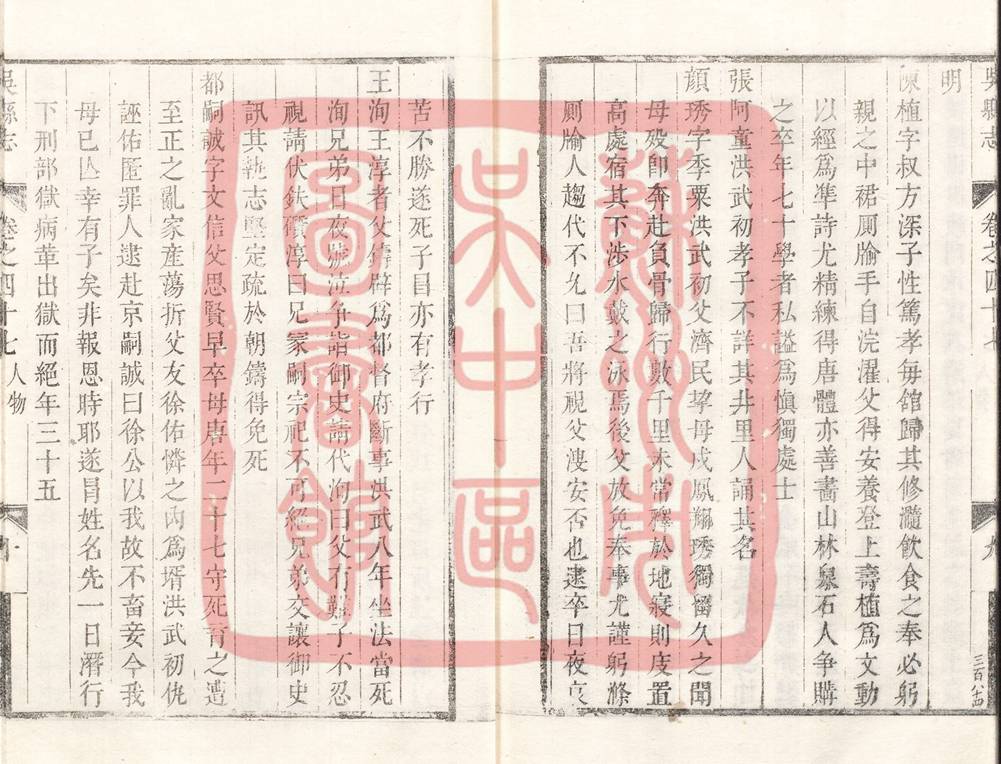 吳縣志
卷之四十七
九
三百七四
明
陳植字叔方深子性篤孝每舘歸其修瀡飲食之奉必躬
親之中裙厠牏手自浣濯父得安養登上壽植爲文動
以經爲準詩尤精練得唐體亦善畵山林泉石人争購
之卒年七十學者私謚爲愼獨處士
張阿童洪武初孝子不詳其井里人誦其名
顔琇字季粟洪武初父濟民挈母戍鳳翔琇獨留久之聞
母歿卽奔赴負骨歸行數千里未常釋於地寢則庋置
高處宿其下渉水戴之泳焉後父放免奉事尤謹躬滌
厠牏人趨代不允曰吾將視父溲安否也逮卒日夜哀
苦不勝遂死子目亦有孝行
王洵王淳者父鑄辟爲都督府斷事洪武八年坐法當死
洵兄弟日夜號泣争詣御史請代洵曰父有難子不忍
視請伏鈇鑕淳曰兄家嗣宗祀不可絕兄弟交讓御史
訊其執志堅定疏於朝鑄得免死
都嗣誠字文信父思賢早卒母唐年二十七守死育之遭
至正之亂家産蕩折父友徐佑憐之內爲壻洪武初仇
誣佑匿罪人逮赴京嗣誠曰徐公以我故不畜妾今我
母已亾幸有子矣非報恩時耶遂冒姓名先一日潛行
下刑部獄病革出獄而絕年三十五
吳縣志
卷之四十七 人物
十
蘇州市
吳中區
圖書館